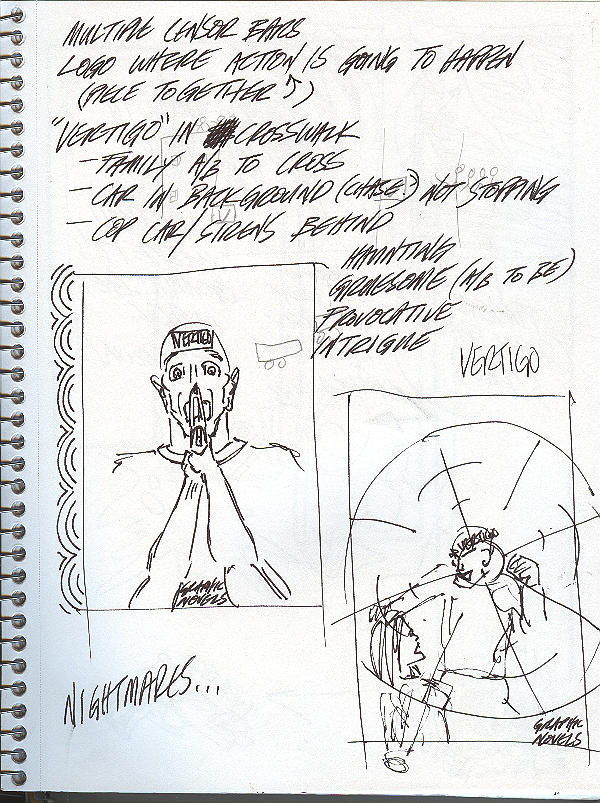 MULTIPLE CENSOR BARS
LOGO WHERE ACTION IS GOING TO HAPPEN
(PIECE TOGETHER)
"VERTIGO" IN CROSSWALK
- FAMILY A/B TO CROSS
- CAR IN BACKGROUND (CHASE?) NOT STOPPING
- COP CAR/SIRENS BEHIND
HAUNTING
GRUESOME (A/B TO BE)
PROVOCATIVE
INTRIGUE
VERTIGO
VERTIGO
GRAPHIC
NOVELS
VERTIGO
GRAPHIC
NOVELS
NIGHTMARES...